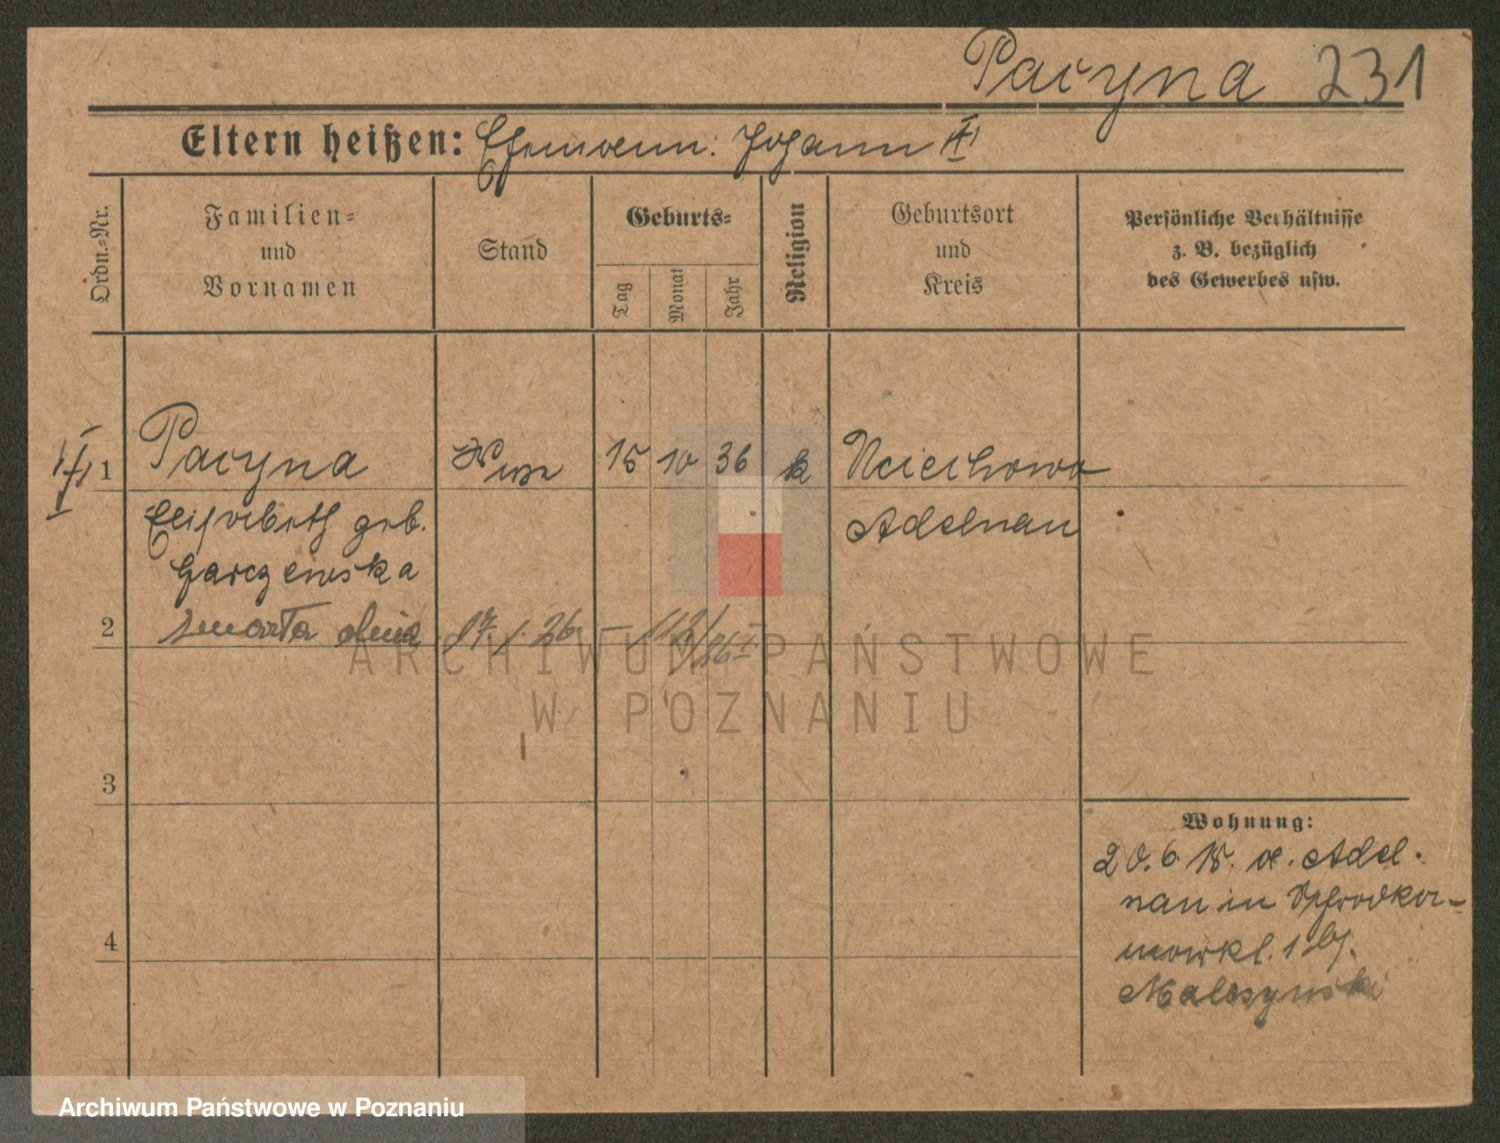 Pacyna 231
Eltern heißen: Ehemann: Johann
Ordn.-Nr.
Familien-
und
Vornamen
Stand
Geburts-
Tag
Monat
Jahr
Religion
Geburtsort
und
Kreis
Persönliche Verhältnisse
z. B. bezüglich
des Gewerbes usw.
1 Pacyna Wwe 15 10 36 k Uciechowo
Elisabeth geb. Adelnau
Garczewska
2 zmarła dnia 17. 1. 26 – 112/26
3
4
Wohnung:
20.6.18. v. Adel-
nau in
1 bj.
Maleszynski
ARCHIWUM PAŃSTWOWE
W POZNANIU
Archiwum Państwowe w Poznaniu